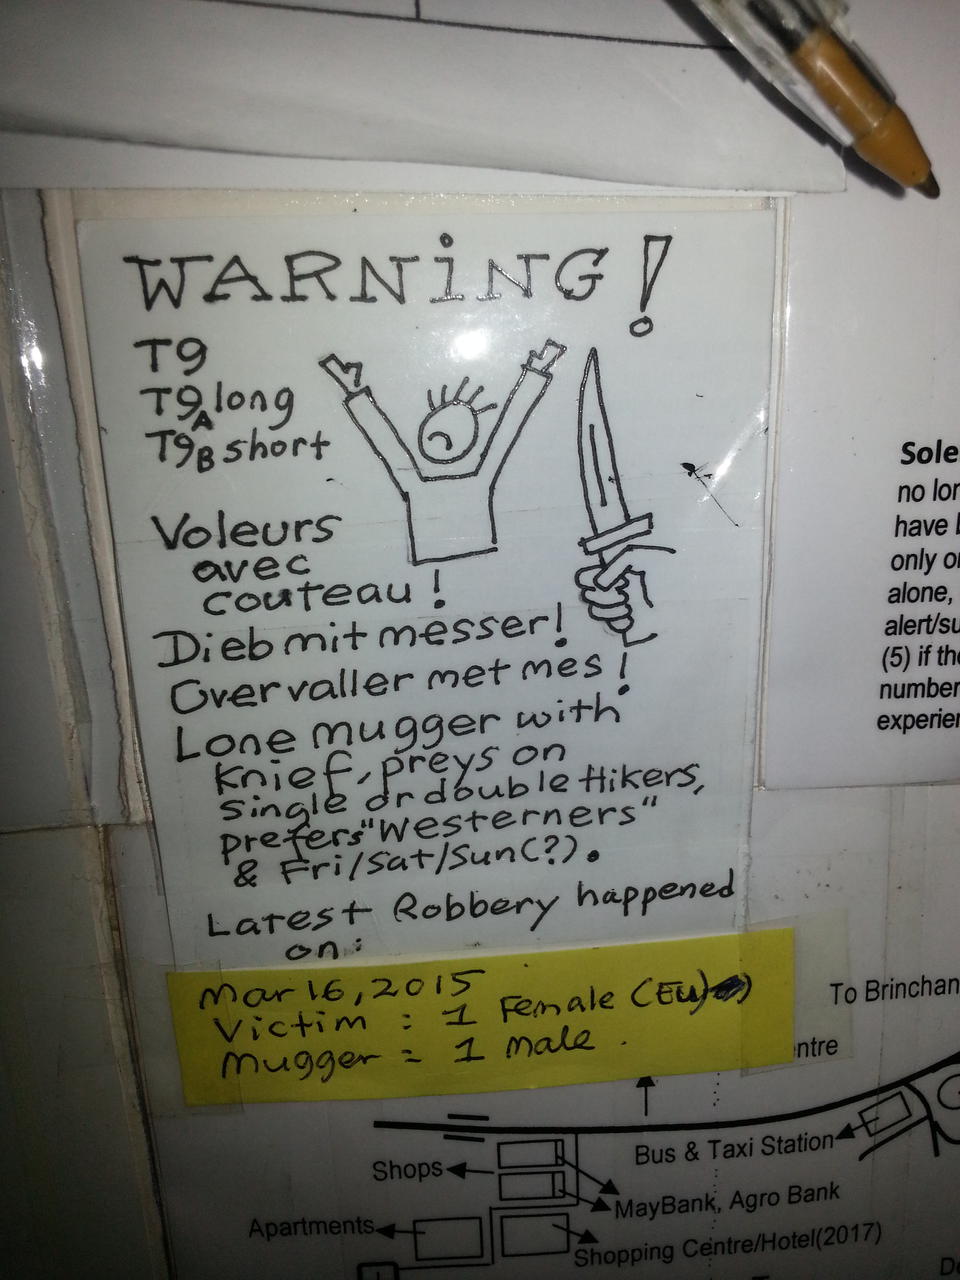 WARNiNG!
T9
T9A long
T9B short
Voleurs
avec
couteau!
Dieb mit messer!
Overvaller met mes!
Lone mugger with
Knief, preys on
single or double Hikers,
prefers "Westerners"
& Fri/Sat/Sun(?).
Latest Robbery happened
on:
Mar 16, 2015
Victim : 1 Female (EU)
Mugger = 1 male.
Sole
no lon
have
only o
alone,
alert/su
(5) if the
number
experien
To Brinchan
ntre
Bus & Taxi Station
Shops
MayBank, Agro Bank
Apartments
Shopping Centre/Hotel(2017)